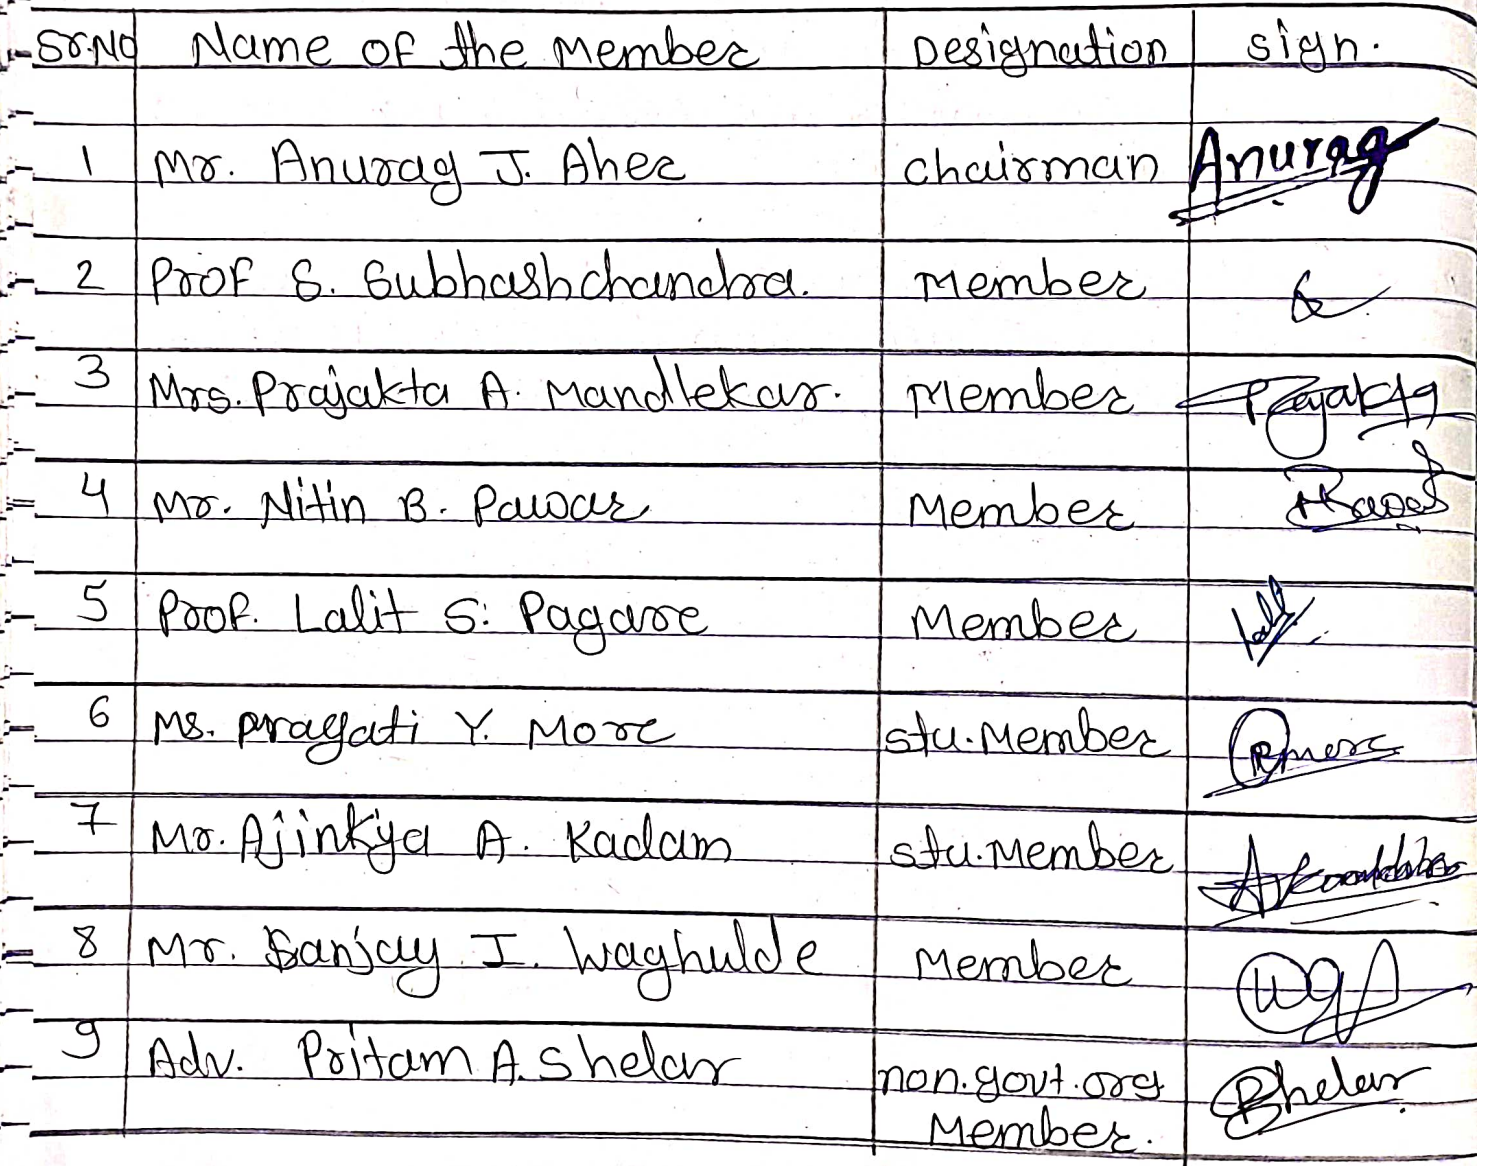 Sr.No Name of the Member Designation sign.
1 Mr. Anurag J. Aher chairman Anurag
2 Prof S. Subhashchandra. Member
3 Mrs. Prajakta A. Mandlekar. Member Prajakta
4 Mr. Nitin B. Pawar Member
5 Prof. Lalit S. Pagare Member
6 Ms. Pragati Y. More stu. Member Pmore
7 Mr. Ajinkya A. Kadam stu. Member
8 Mr. Sanjay I. Waghulde Member
9 Adv. Pritam A. Shelar non. govt. org
Member.